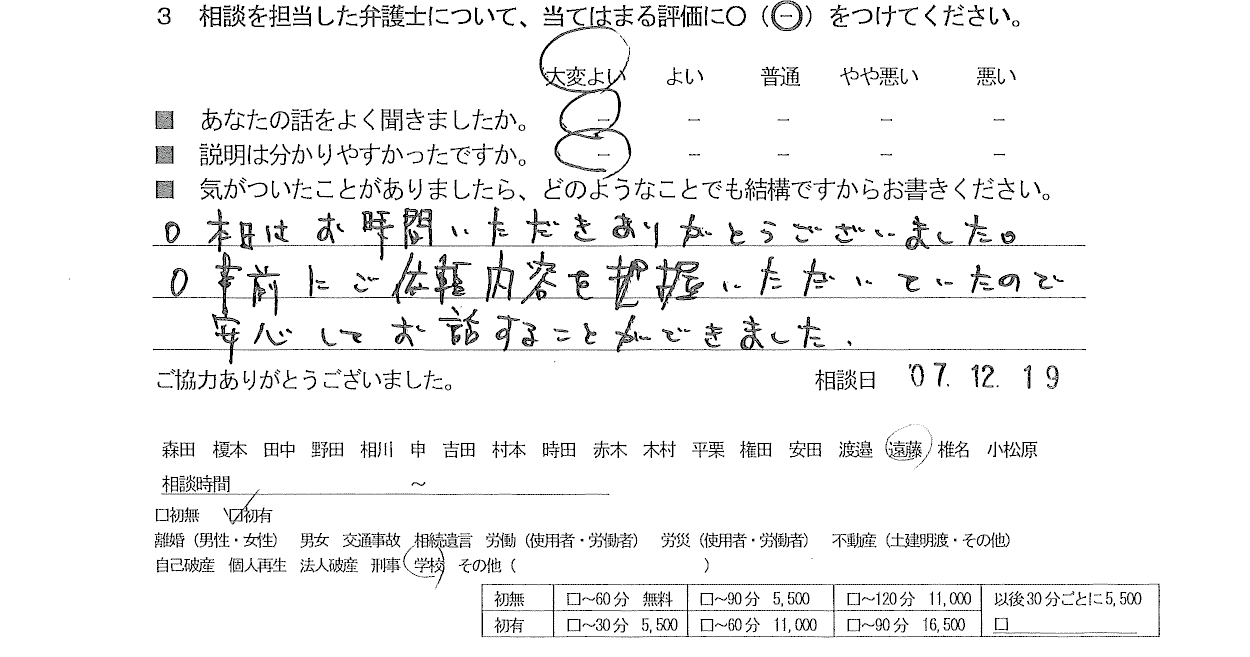 3 相談を担当した弁護士について、当てはまる評価に○（⊖）をつけてください。
大変よい よい 普通 やや悪い 悪い
■ あなたの話をよく聞きましたか。 － － － － －
■ 説明は分かりやすかったですか。 － － － － －
■ 気がついたことがありましたら、どのようなことでも結構ですからお書きください。
○ 本日はお時間いただきありがとうございました。
○ 事前にご依頼内容を把握いただいていたので
安心してお話することができました.
ご協力ありがとうございました。 相談日 '07. 12. 19
森田 榎本 田中 野田 相川 申 吉田 村本 時田 赤木 木村 平栗 権田 安田 渡邉 遠藤 椎名 小松原
相談時間 ～
□初無 ☑初有
離婚（男性・女性） 男女 交通事故 相続遺言 労働（使用者・労働者） 労災（使用者・労働者） 不動産（土建明渡・その他）
自己破産 個人再生 法人破産 刑事 学校 その他（ ）
初無 □～60分 無料 □～90分 5,500 □～120分 11,000 以後30分ごとに5,500
初有 □～30分 5,500 □～60分 11,000 □～90分 16,500 □